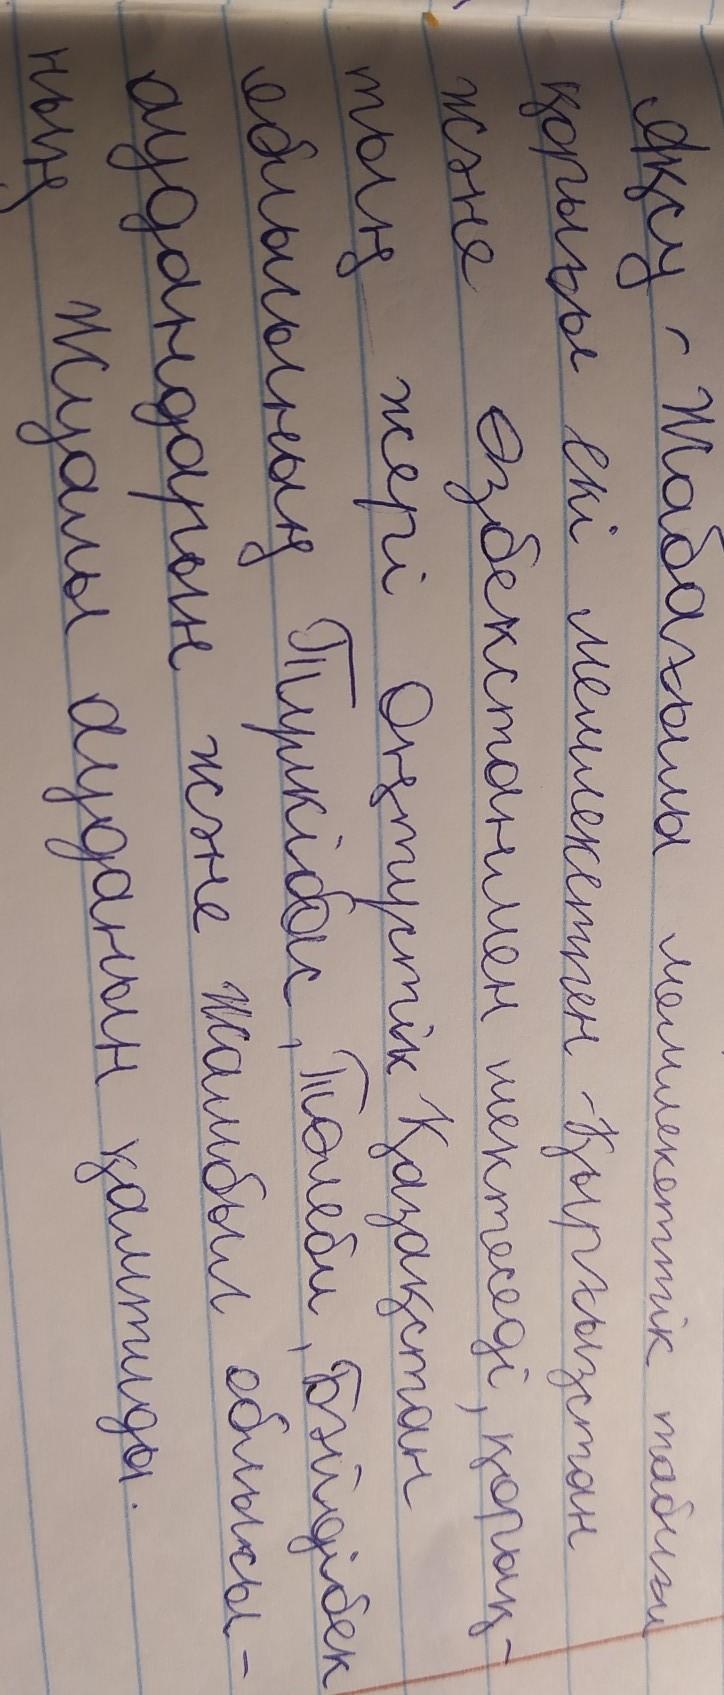 Ақсу - Жабағылы мемлекеттік табиғи
қорығы екі мемлекетпен - Қырғызстан
және Өзбекстанмен шектеседі, қорық-
тың жері Оңтүстік Қазақстан
облысының Түлкібас, Төлеби, Бәйдібек
аудандарын және Жамбыл облысы-
ның Жуалы ауданын қамтиды.